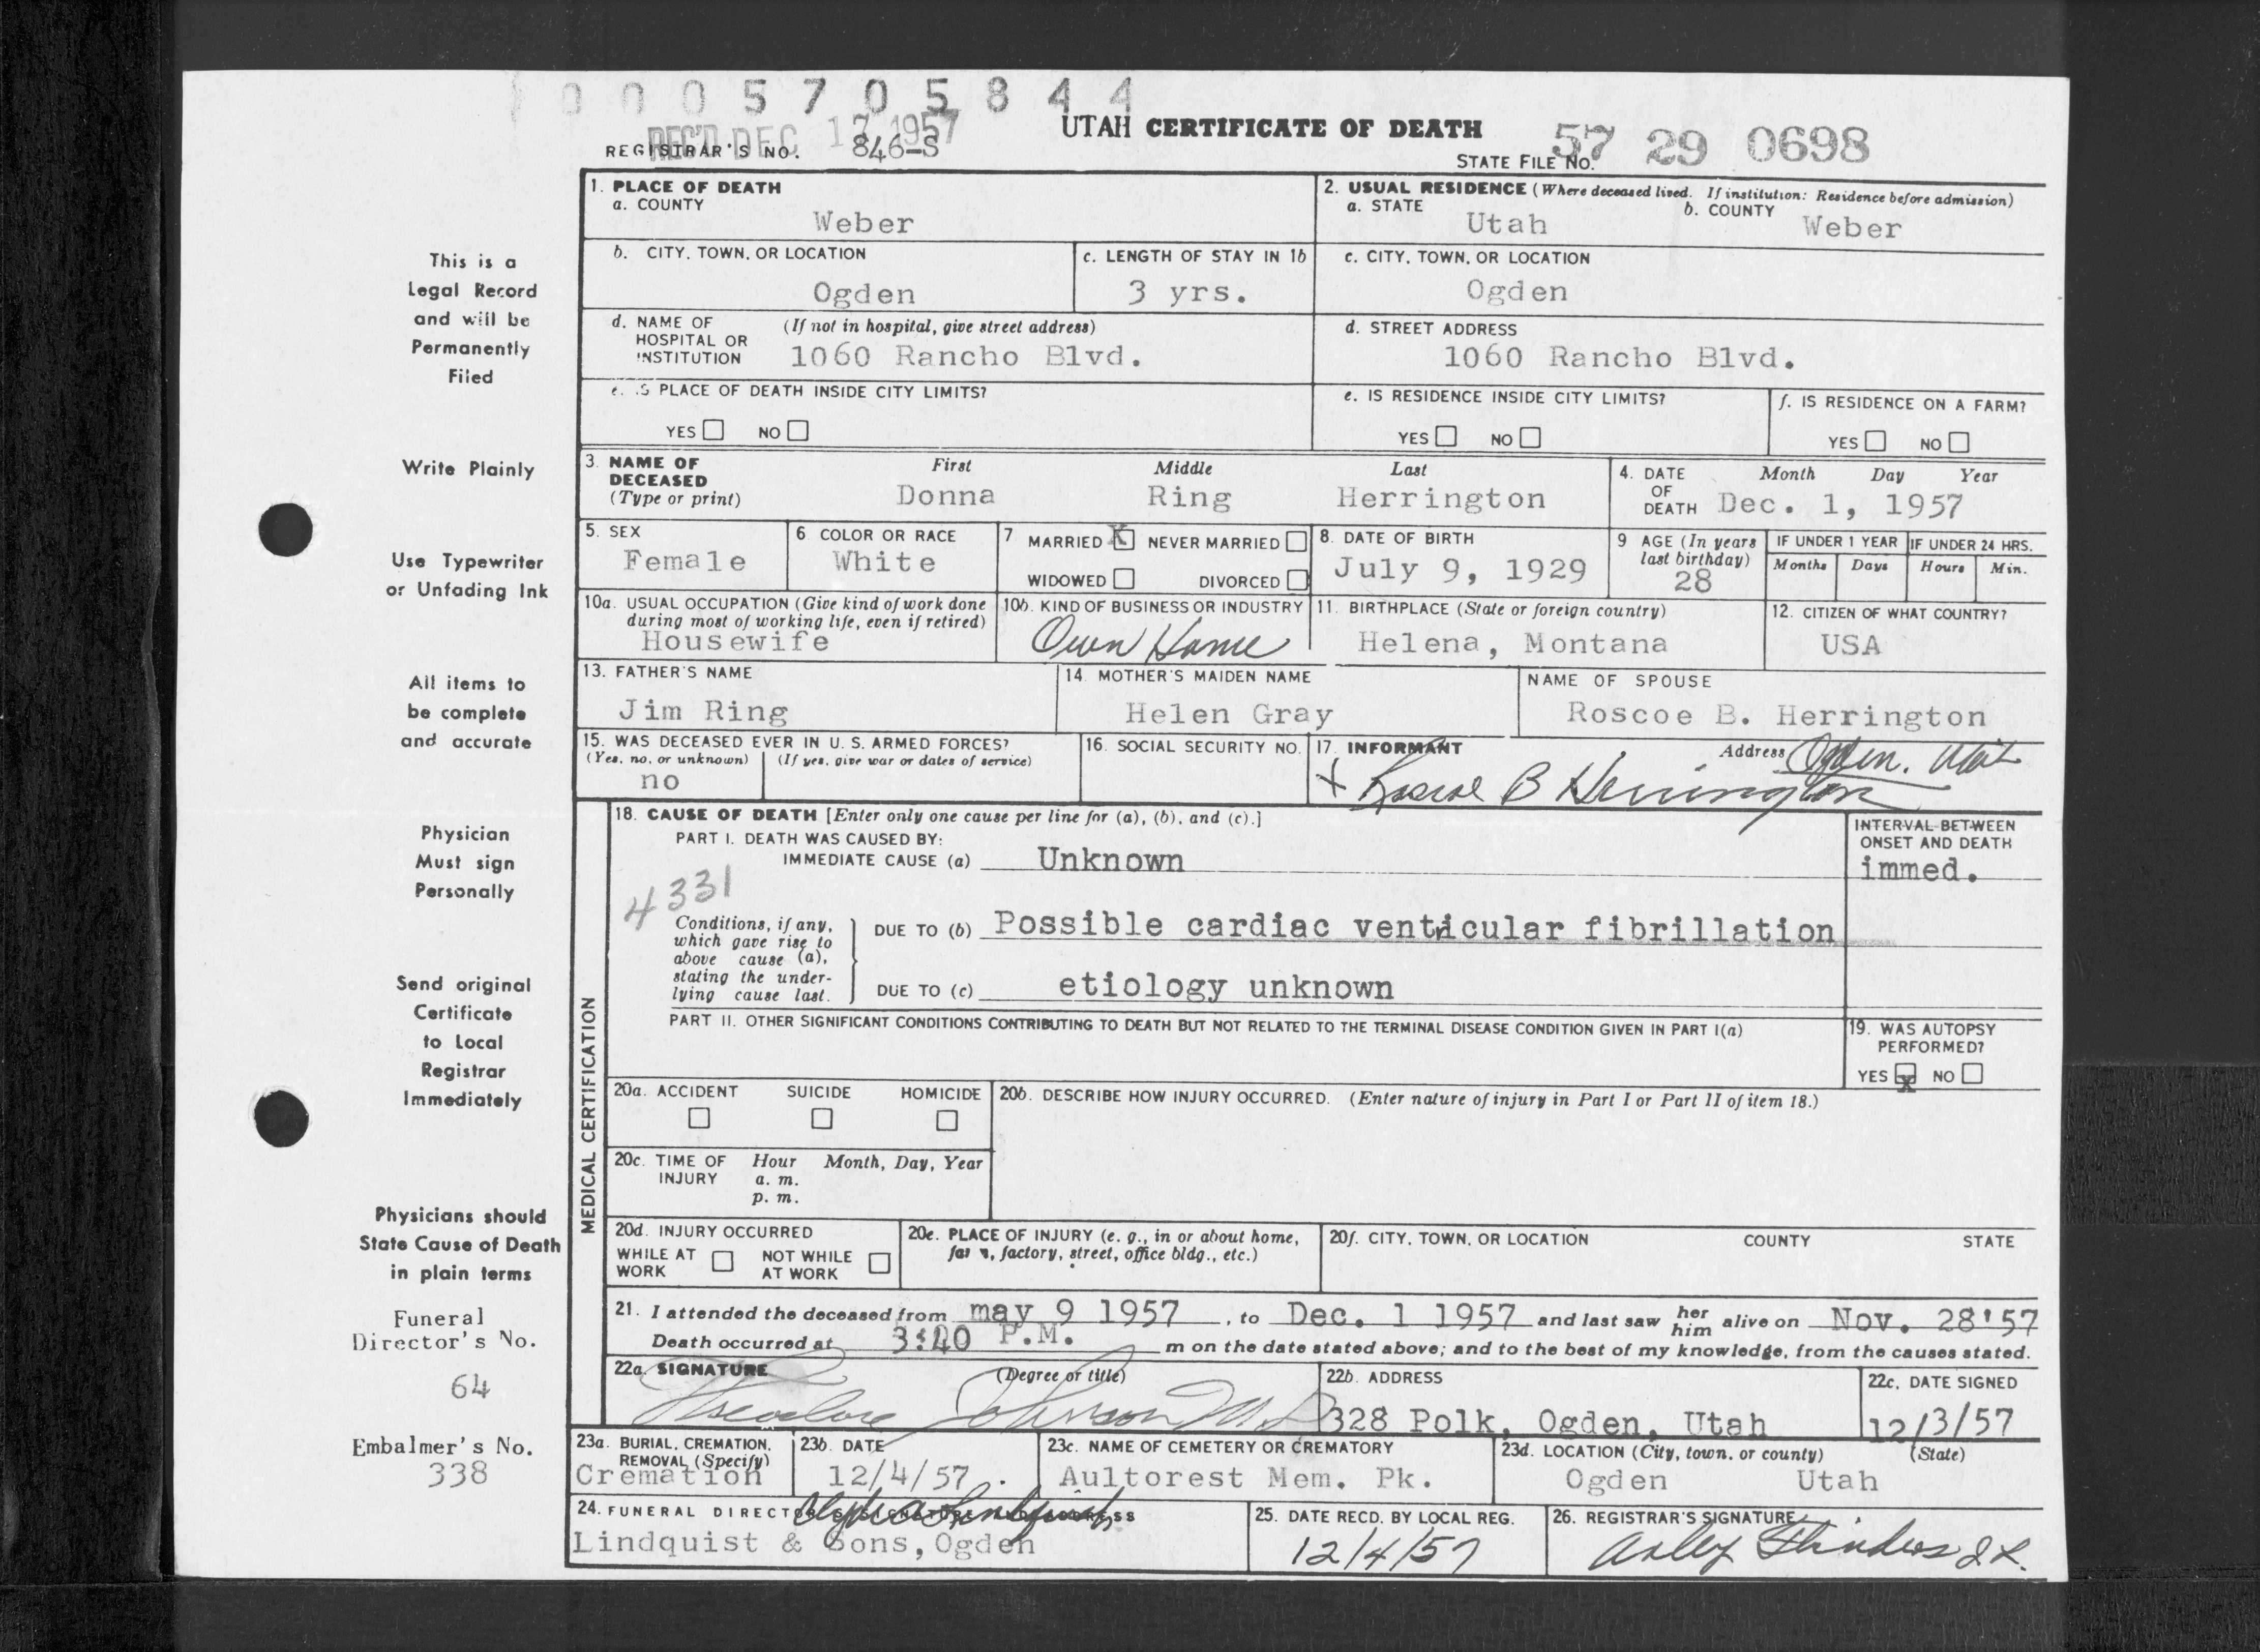 0005705844
REC'D DEC 17 1957
UTAH CERTIFICATE OF DEATH
REGISTRAR'S NO. 846-S
STATE FILE NO. 57 29 0698
1. PLACE OF DEATH
a. COUNTY
Weber
2. USUAL RESIDENCE (Where deceased lived. If institution: Residence before admission)
a. STATE
Utah
b. COUNTY
Weber
b. CITY, TOWN, OR LOCATION
Ogden
c. LENGTH OF STAY IN 1b
3 yrs.
c. CITY, TOWN, OR LOCATION
Ogden
d. NAME OF HOSPITAL OR INSTITUTION
(If not in hospital, give street address)
1060 Rancho Blvd.
d. STREET ADDRESS
1060 Rancho Blvd.
e. IS PLACE OF DEATH INSIDE CITY LIMITS?
YES NO
e. IS RESIDENCE INSIDE CITY LIMITS?
YES NO
f. IS RESIDENCE ON A FARM?
YES NO
3. NAME OF DECEASED
(Type or print)
First Middle Last
Donna Ring Herrington
4. DATE OF DEATH
Month Day Year
Dec. 1, 1957
5. SEX
Female
6 COLOR OR RACE
White
7 MARRIED X NEVER MARRIED
WIDOWED DIVORCED
8. DATE OF BIRTH
July 9, 1929
9 AGE (In years last birthday)
28
IF UNDER 1 YEAR
Months Days
IF UNDER 24 HRS.
Hours Min.
10a. USUAL OCCUPATION (Give kind of work done during most of working life, even if retired)
Housewife
10b. KIND OF BUSINESS OR INDUSTRY
Own Home
11. BIRTHPLACE (State or foreign country)
Helena, Montana
12. CITIZEN OF WHAT COUNTRY?
USA
13. FATHER'S NAME
Jim Ring
14. MOTHER'S MAIDEN NAME
Helen Gray
NAME OF SPOUSE
Roscoe B. Herrington
15. WAS DECEASED EVER IN U. S. ARMED FORCES?
(Yes, no, or unknown) (If yes, give war or dates of service)
no
16. SOCIAL SECURITY NO.
17. INFORMANT
Address Ogden, Utah
x Roscoe B Herrington
MEDICAL CERTIFICATION
18. CAUSE OF DEATH [Enter only one cause per line for (a), (b), and (c).]
PART I. DEATH WAS CAUSED BY:
IMMEDIATE CAUSE (a) Unknown
INTERVAL BETWEEN ONSET AND DEATH
immed.
4331
Conditions, if any, which gave rise to above cause (a), stating the underlying cause last.
DUE TO (b) Possible cardiac ventricular fibrillation
DUE TO (c) etiology unknown
PART II. OTHER SIGNIFICANT CONDITIONS CONTRIBUTING TO DEATH BUT NOT RELATED TO THE TERMINAL DISEASE CONDITION GIVEN IN PART I(a)
19. WAS AUTOPSY PERFORMED?
YES X NO
20a. ACCIDENT SUICIDE HOMICIDE
20b. DESCRIBE HOW INJURY OCCURRED. (Enter nature of injury in Part I or Part II of item 18.)
20c. TIME OF INJURY
Hour Month, Day, Year
a. m.
p. m.
20d. INJURY OCCURRED
WHILE AT WORK NOT WHILE AT WORK
20e. PLACE OF INJURY (e. g., in or about home, farm, factory, street, office bldg., etc.)
20f. CITY, TOWN, OR LOCATION COUNTY STATE
21. I attended the deceased from may 9 1957, to Dec. 1 1957 and last saw her him alive on Nov. 28'57
Death occurred at 3:40 P.M. m on the date stated above; and to the best of my knowledge, from the causes stated.
22a. SIGNATURE (Degree or title)
Theodore Johnson M.D.
22b. ADDRESS
328 Polk, Ogden, Utah
22c. DATE SIGNED
12/3/57
23a. BURIAL, CREMATION, REMOVAL (Specify)
Cremation
23b. DATE
12/4/57
23c. NAME OF CEMETERY OR CREMATORY
Aultorest Mem. Pk.
23d. LOCATION (City, town, or county) (State)
Ogden Utah
24. FUNERAL DIRECTOR'S SIGNATURE AND ADDRESS
Lindquist & Sons, Ogden
25. DATE RECD. BY LOCAL REG.
12/4/57
26. REGISTRAR'S SIGNATURE
This is a
Legal Record
and will be
Permanently
Filed
Write Plainly
Use Typewriter
or Unfading Ink
All items to
be complete
and accurate
Physician
Must sign
Personally
Send original
Certificate
to Local
Registrar
Immediately
Physicians should
State Cause of Death
in plain terms
Funeral
Director's No.
64
Embalmer's No.
338